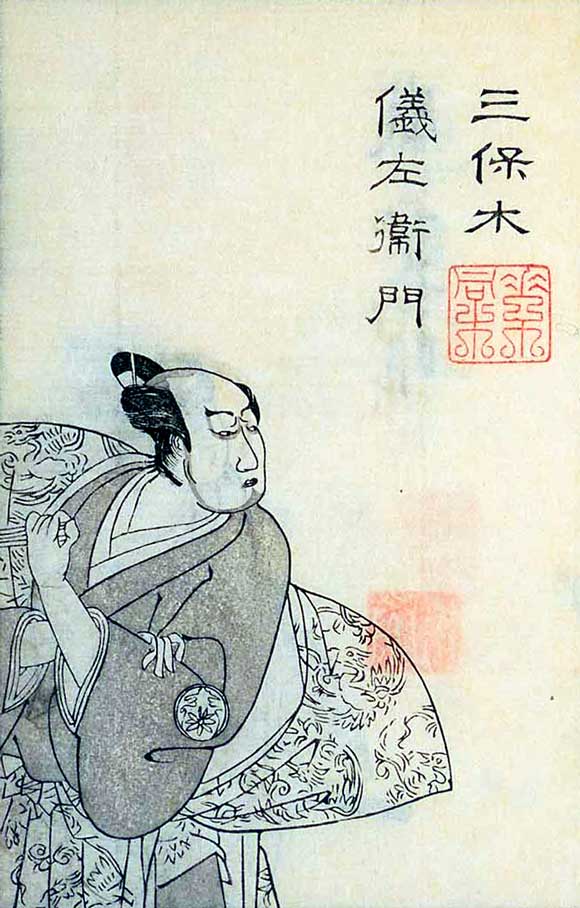 三保木
儀左衛門